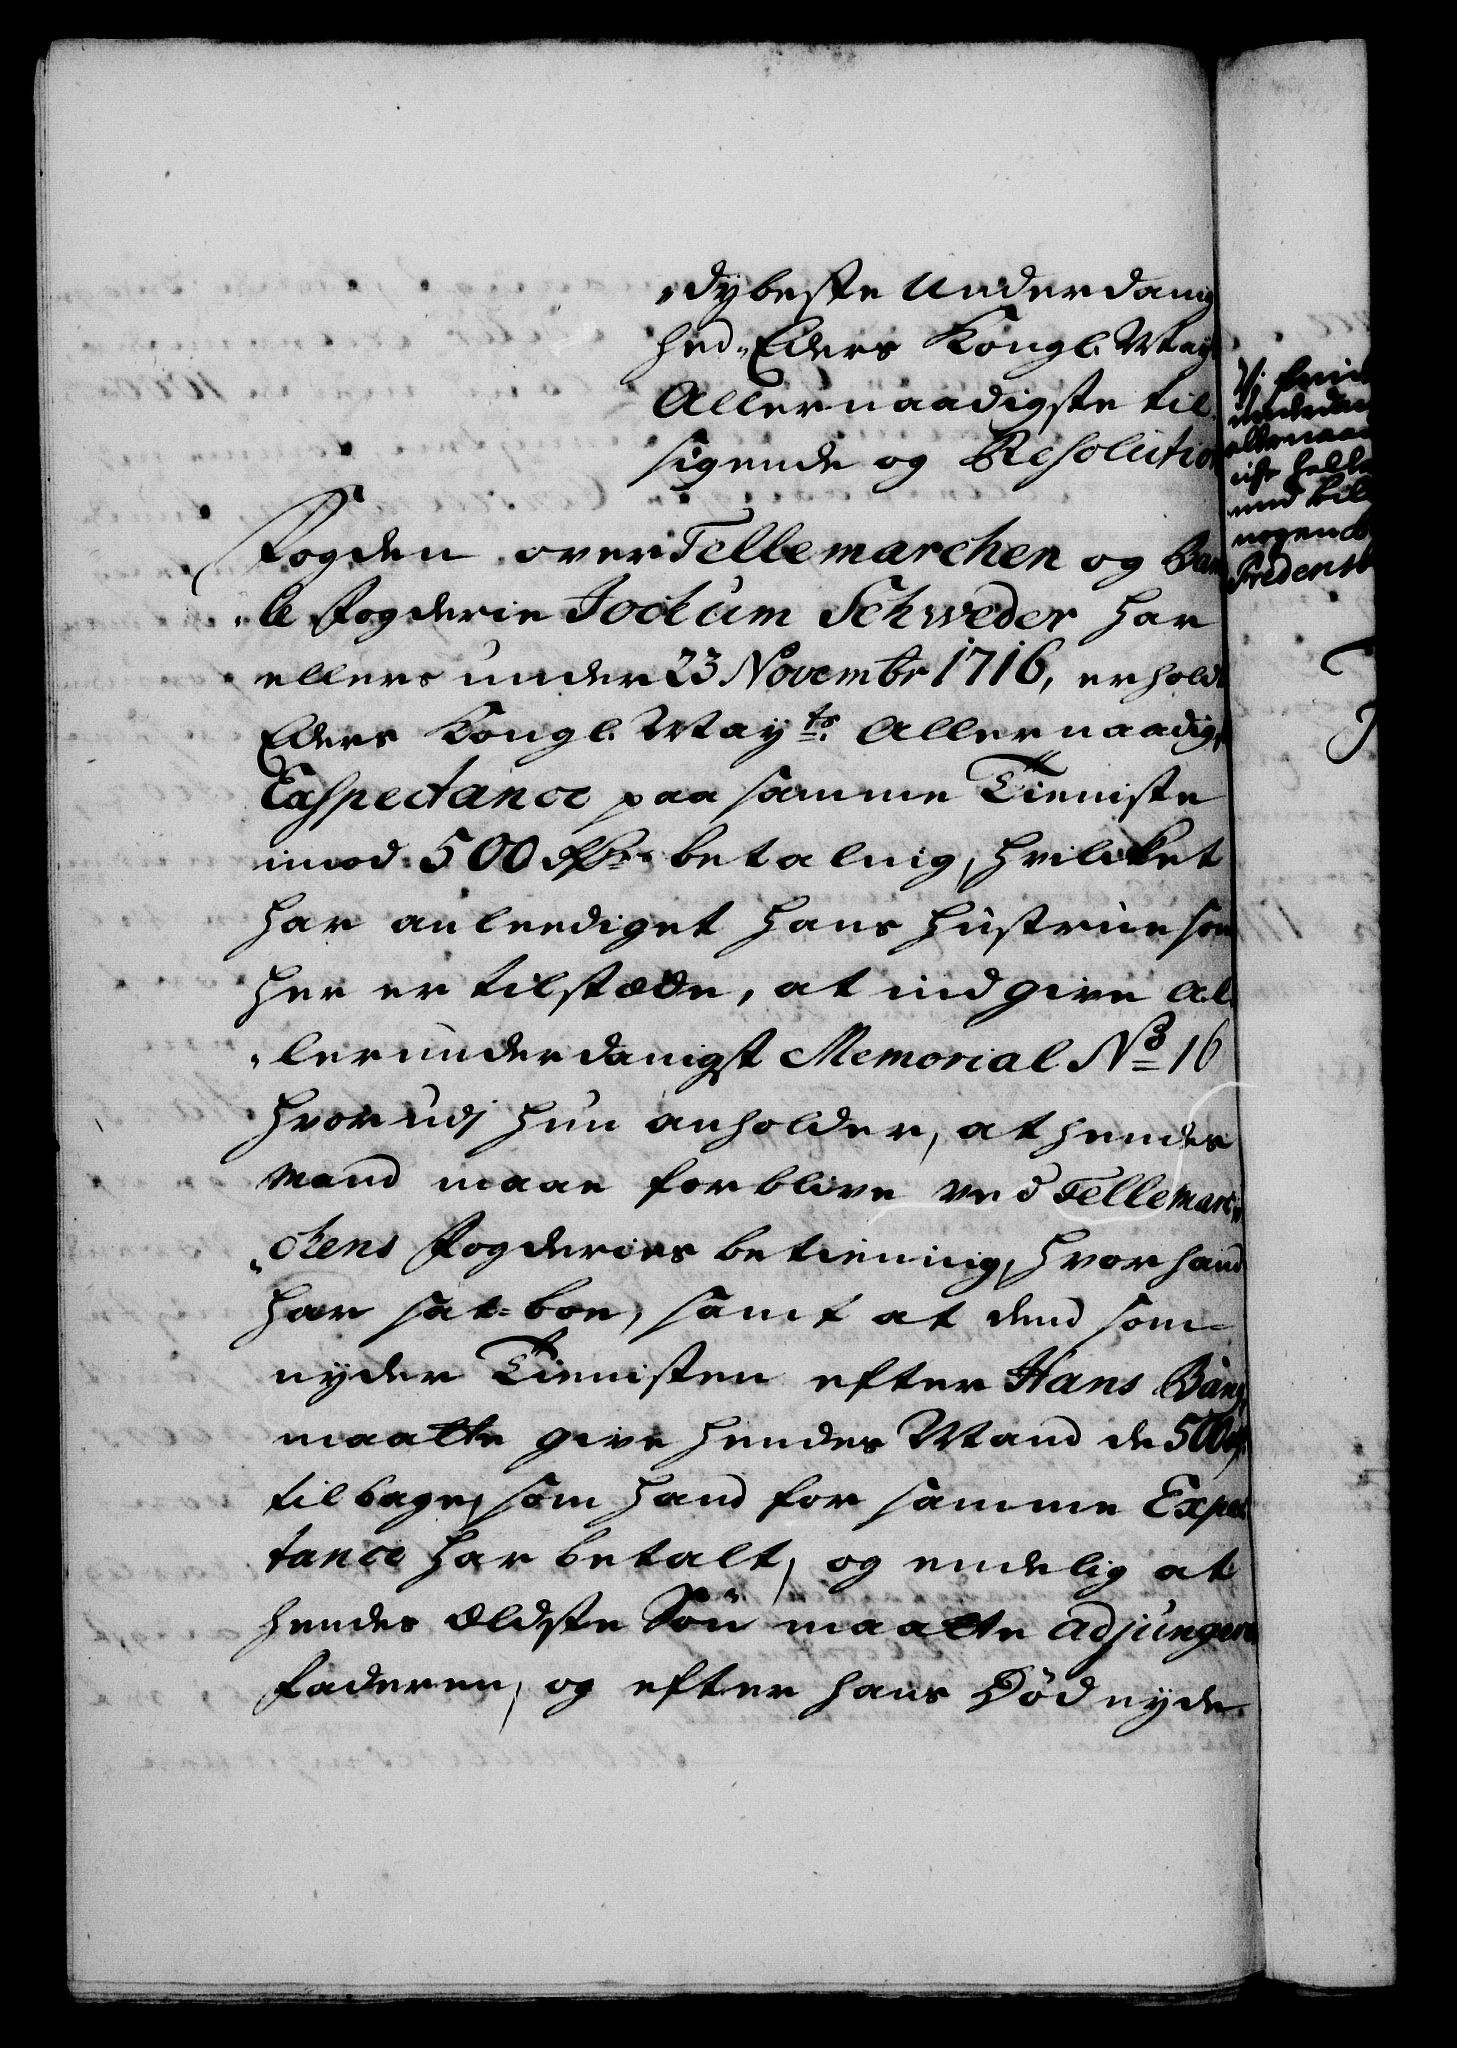 „dybeste Underdanig
hed„ Eders Kongl. May
Allernaadigste til
sigende og Resolution
Fogden over Tellemarchen og Bam
„le Fogderie Jockum Schweder har
ellers under 23 Novembr 1716, erholdt
Eders Kongl. Mayts. Allernaadigst
Exspectance paa samme Tieniste
imod 500 Rdr betalnig, hvilcket
har anleediget hans hustrue som
her er tilstæde, at indgive al
„lerunderdanigst Memorial No 16
hvorudj hun anholder, at hendes
Mand maae forblive ved Tellemar
„chens Fogderies betiennig, hvor hand
har sat-boe, samt at dend som
nyder Tienisten efter Hans Bang
maatte give hendes Mand de 500
tilbage, som hand for samme Expec
tance har betalt, og endelig at
hendes Ældste Sön maatte adjungere
Faderen, og efter hans Död nyde
Vi
allernaa
med
nogen